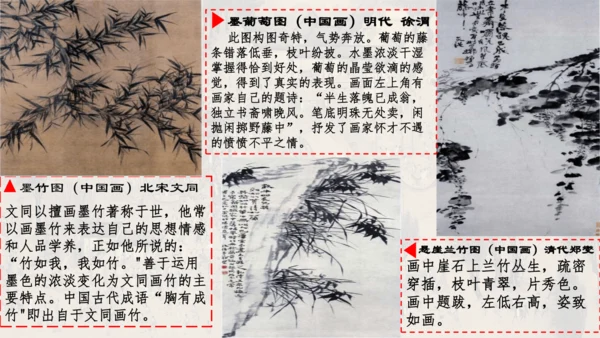 墨葡萄图（中国画）明代 徐渭
此图构图奇特，气势奔放。葡萄的藤
条错落低垂，枝叶纷披。水墨浓淡干湿
掌握得恰到好处，葡萄的晶莹欲滴的感
觉，得到了真实的表现。画面左上角有
画家自己的题诗：“半生落魄已成翁，
独立书斋啸晚风。笔底明珠无处卖，闲
抛闲掷野藤中”，抒发了画家怀才不遇
的愤愤不平之情。
墨竹图（中国画）北宋文同
文同以擅画墨竹著称于世，他常
以画墨竹来表达自己的思想情感
和人品学养，正如他所说的：
“竹如我，我如竹。"善于运用
墨色的浓淡变化为文同画竹的主
要特点。中国古代成语“胸有成
竹"即出自于文同画竹。
悬崖兰竹图（中国画）清代郑燮
画中崖石上兰竹丛生，疏密
穿插，枝叶青翠，片秀色。
画中题跋，左低右高，姿致
如画。